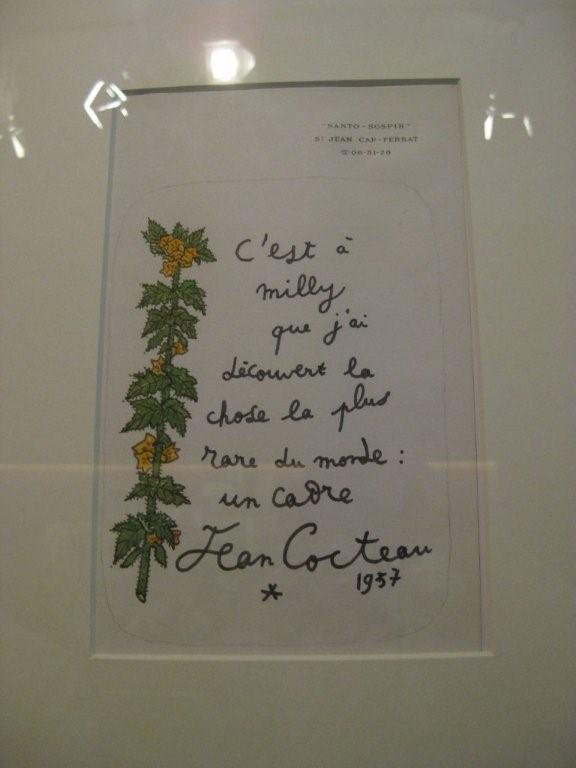 "SANTO-SOSPIR"
St JEAN CAP-FERRAT
☎ 06-31-28
C'est à
milly
que j'ai
découvert la
chose la plus
rare du monde :
un cadre
Jean Cocteau
*
1957